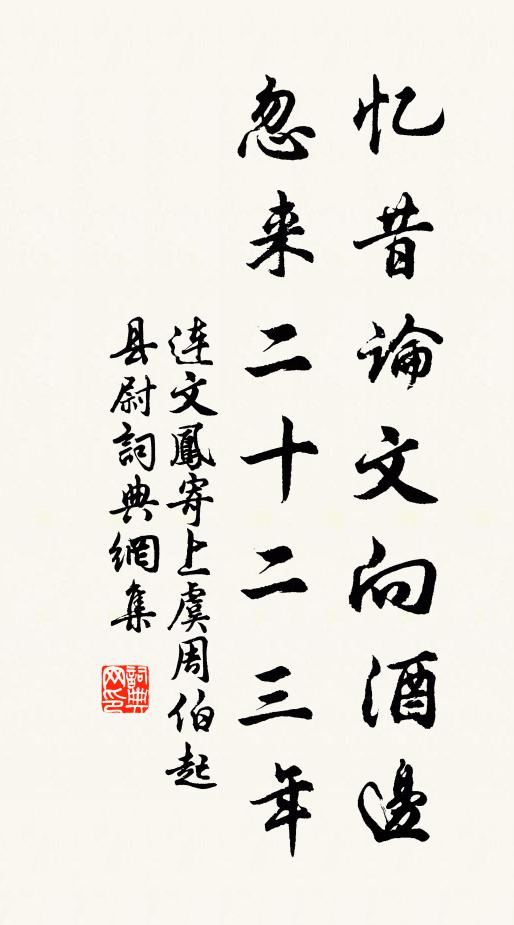 忆昔論文向酒邊
忽来二十二三年
連文鳳寄上虞周伯起
县尉詞典網集
詞典
网印